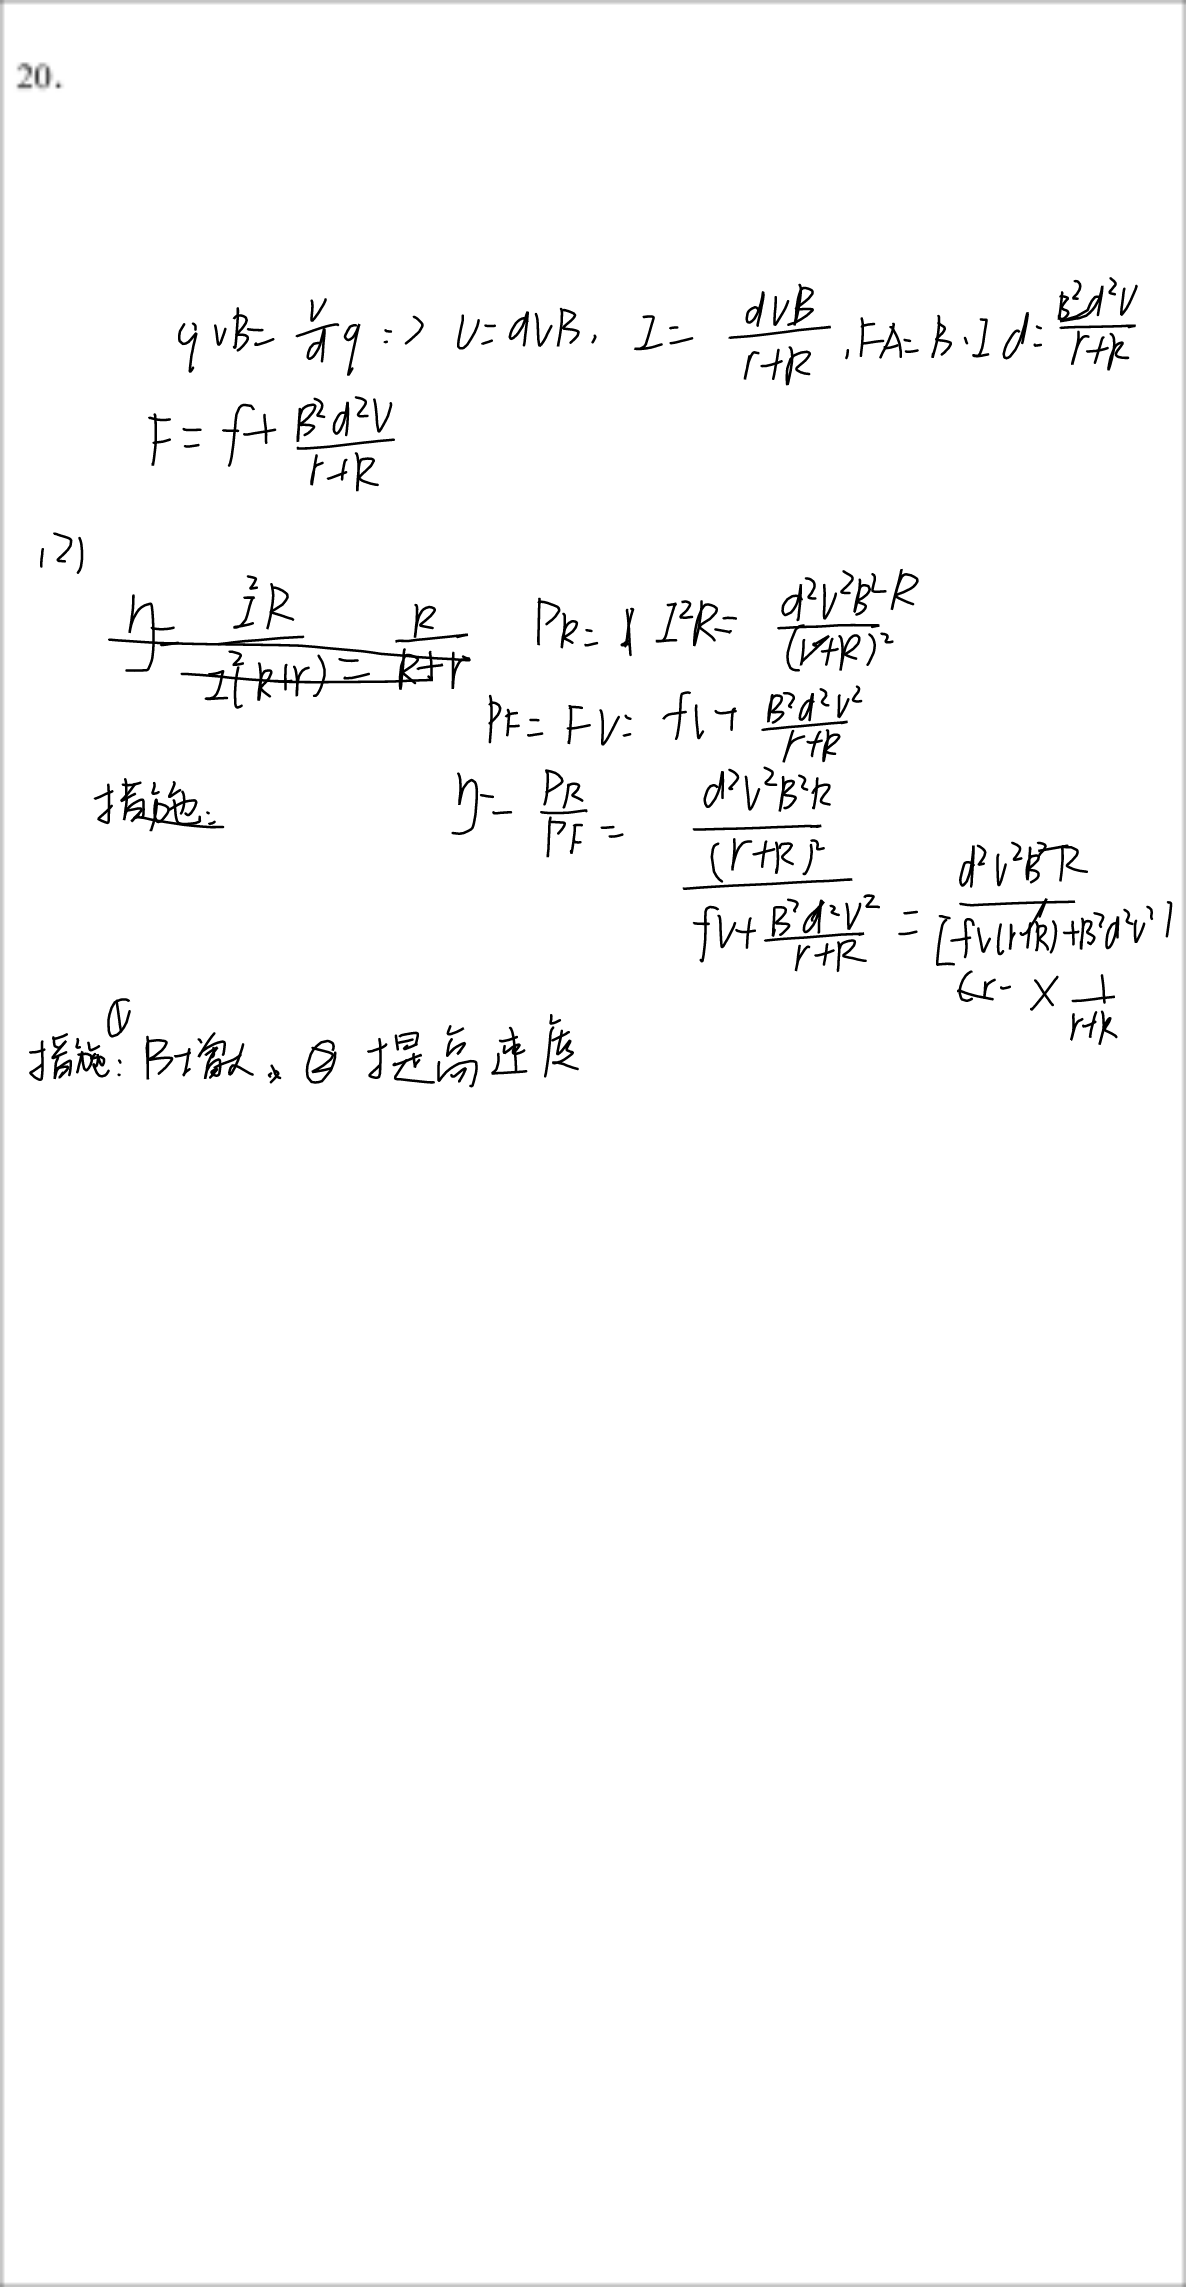 20.
qvB=\frac{V}{d}q => U=dvB, I=\frac{dvB}{r+R}, FA=B·Id=\frac{B²d²V}{r+R}
F=f+\frac{B²d²V}{r+R}
(2)
η=\frac{I²R}{I²(R+r)}=\frac{R}{R+r} PR=I²R=\frac{d²V²B²R}{(r+R)²}
PF=FV=fv+\frac{B²d²V²}{r+R}
措施: η=\frac{PR}{PF}=\frac{\frac{d²V²B²R}{(r+R)²}}{fv+\frac{B²d²V²}{r+R}}=\frac{d²V²B²R}{[fv(r+R)+B²d²v²]}
×\frac{1}{r+R}
措施:①B增大、② 提高速度